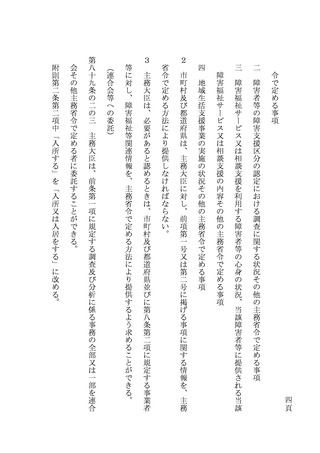 四頁
令で定める事項
二 障害者等の障害支援区分の認定における調査に関する状況その他の主務省令で定める事項
三 障害福祉サービス又は相談支援を利用する障害者等の心身の状況、当該障害者等に提供される当該
障害福祉サービス又は相談支援の内容その他の主務省令で定める事項
四 地域生活支援事業の実施の状況その他の主務省令で定める事項
２ 市町村及び都道府県は、主務大臣に対し、前項第一号又は第二号に掲げる事項に関する情報を、主務
省令で定める方法により提供しなければならない。
３ 主務大臣は、必要があると認めるときは、市町村及び都道府県並びに第八条第二項に規定する事業者
等に対し、障害福祉等関連情報を、主務省令で定める方法により提供するよう求めることができる。
（連合会等への委託）
第八十九条の二の三 主務大臣は、前条第一項に規定する調査及び分析に係る事務の全部又は一部を連合
会その他主務省令で定める者に委託することができる。
附則第二条第二項中「入所する」を「入所又は入居をする」に改める。